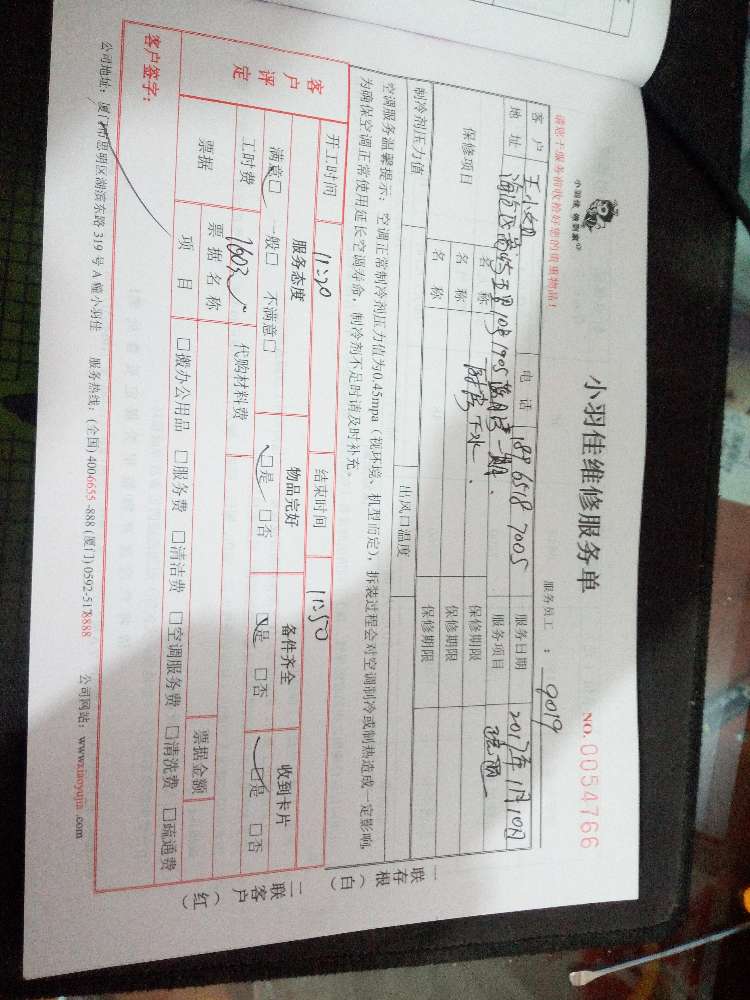 小羽佳 修到家
小羽佳维修服务单
NO.0054766
请您于服务前收拾好您的贵重物品!
服务员工: 9019
客户 王小姐 电话 189 6518 7005 服务日期 2017年11月10日
地址 1905 服务项目
保修项目 名称 保修期限
名称 保修期限
名称 保修期限
制冷剂压力值 出风口温度
空调服务温馨提示:空调正常制冷剂压力值为0.45mpa(视环境、机型而定),拆装过程会对空调制冷或制热造成一定影响,
为确保空调正常使用延长空调寿命,制冷剂不足时请及时补充。
开工时间 11:20 结束时间 11:50
客户评定 服务态度 物品完好 备件齐全 收到卡片
满意□ 一般□ 不满意□ □是 □否 □是 □否 □是 □否
工时费 代购材料费
票据 票据名称 票据金额
项目 □搬办公用品 □服务费 □清洁费 □空调服务费 □清洗费 □疏通费
客户签字:
公司地址:厦门市思明区湖滨东路319号A幢小羽佳 服务热线:(全国)4006655-888(厦门)0592-5178888 公司网站:www.xiaoyujia.com
一联存根(白)
二联客户(红)